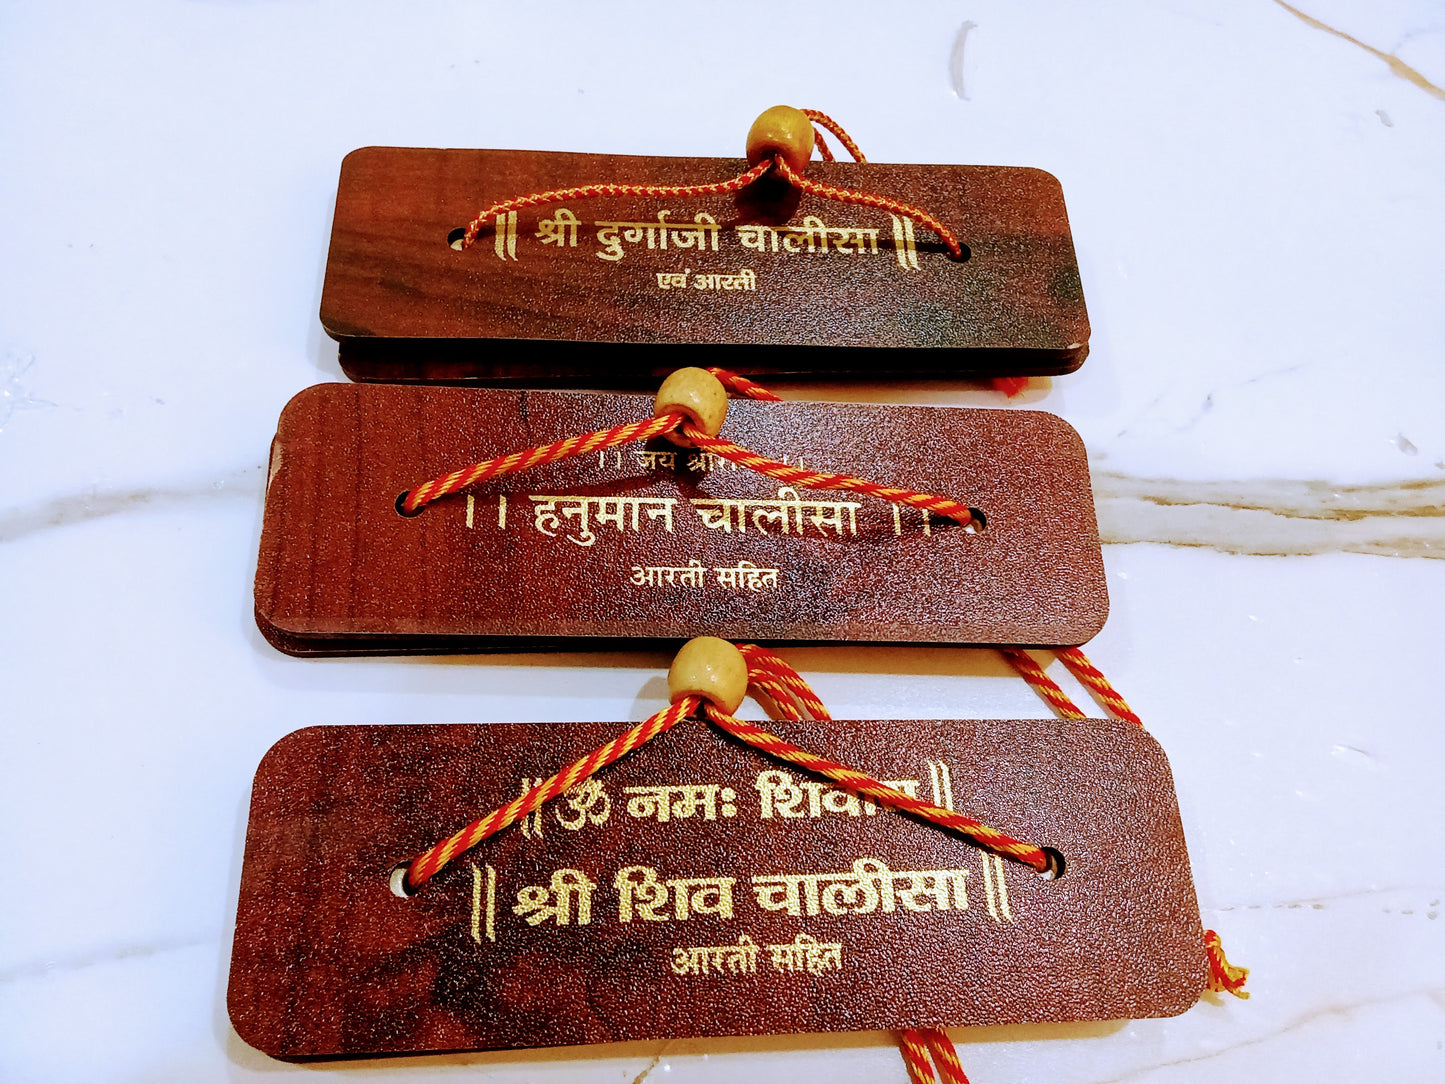 ॥ श्री दुर्गाजी चालीसा ॥
एवं आरती
।। जय ।।
।। हनुमान चालीसा ।।
आरती सहित
॥ ॐ नमः शिवाय ॥
॥ श्री शिव चालीसा ॥
आरती सहित